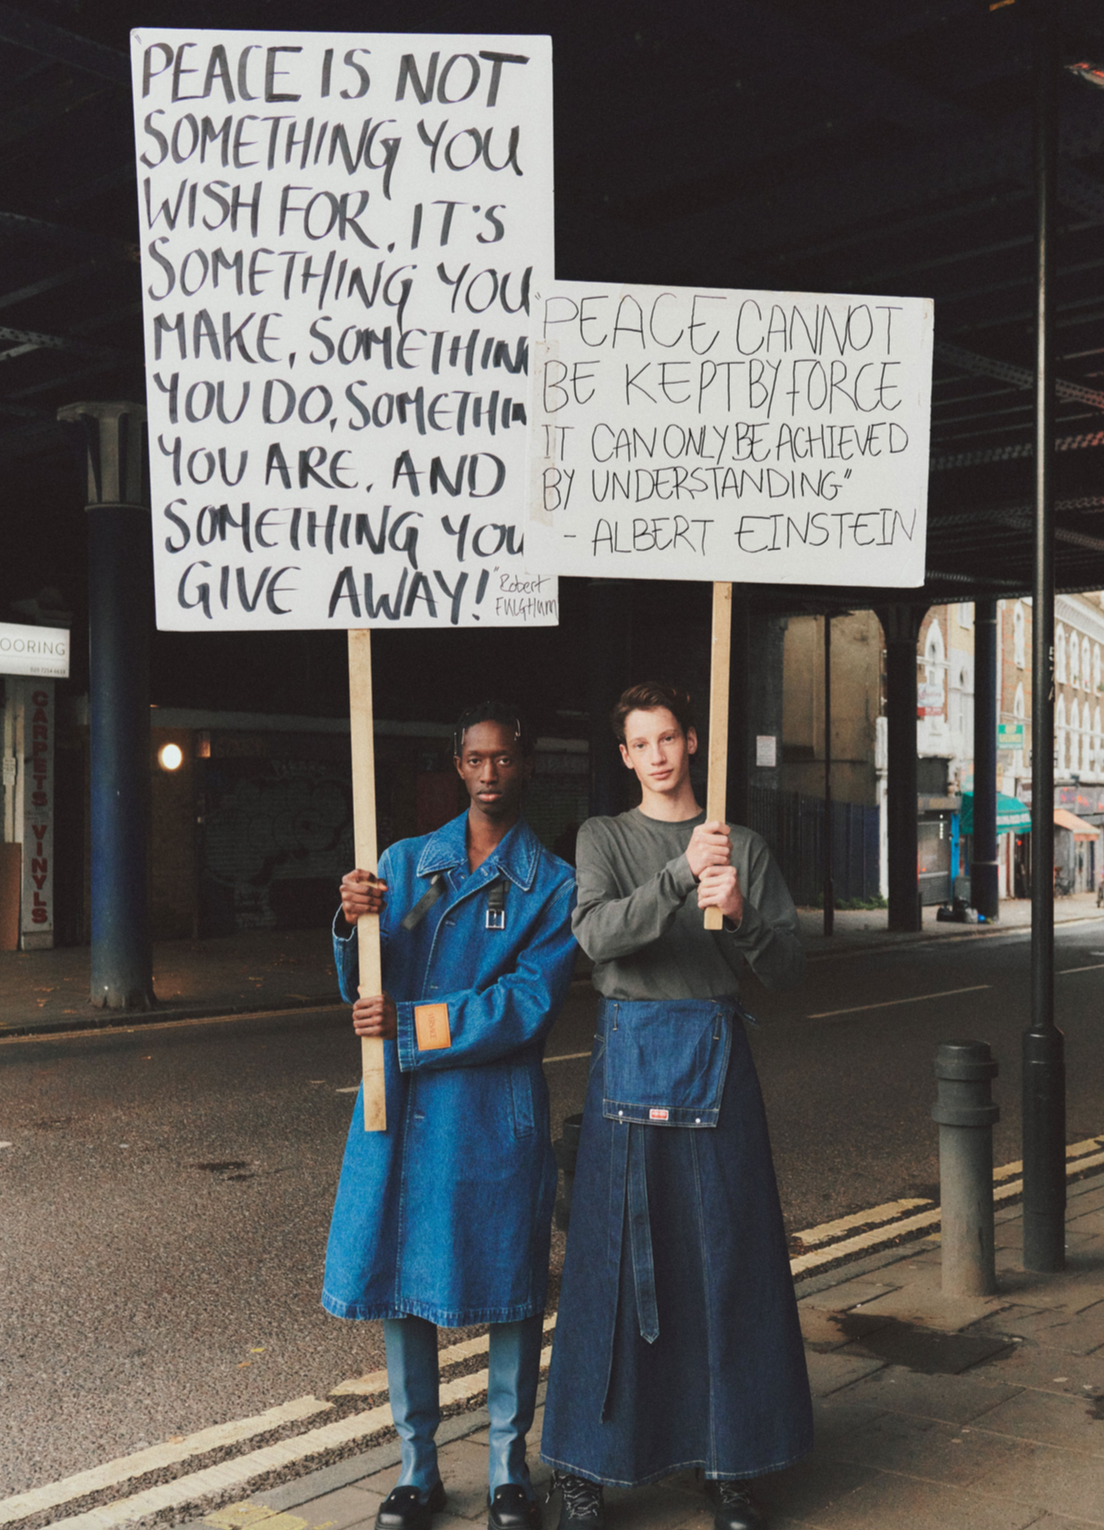 PEACE IS NOT
SOMETHING YOU
WISH FOR, IT'S
SOMETHING YOU
MAKE, SOMETHIN
YOU DO, SOMETHIN
YOU ARE, AND
SOMETHING YOU
GIVE AWAY!
"Robert
FULGHUM
"PEACE CANNOT
BE KEPT BY FORCE
IT CAN ONLY BE ACHIEVED
BY UNDERSTANDING"
- ALBERT EINSTEIN
OORING
CARPETS VINYLS